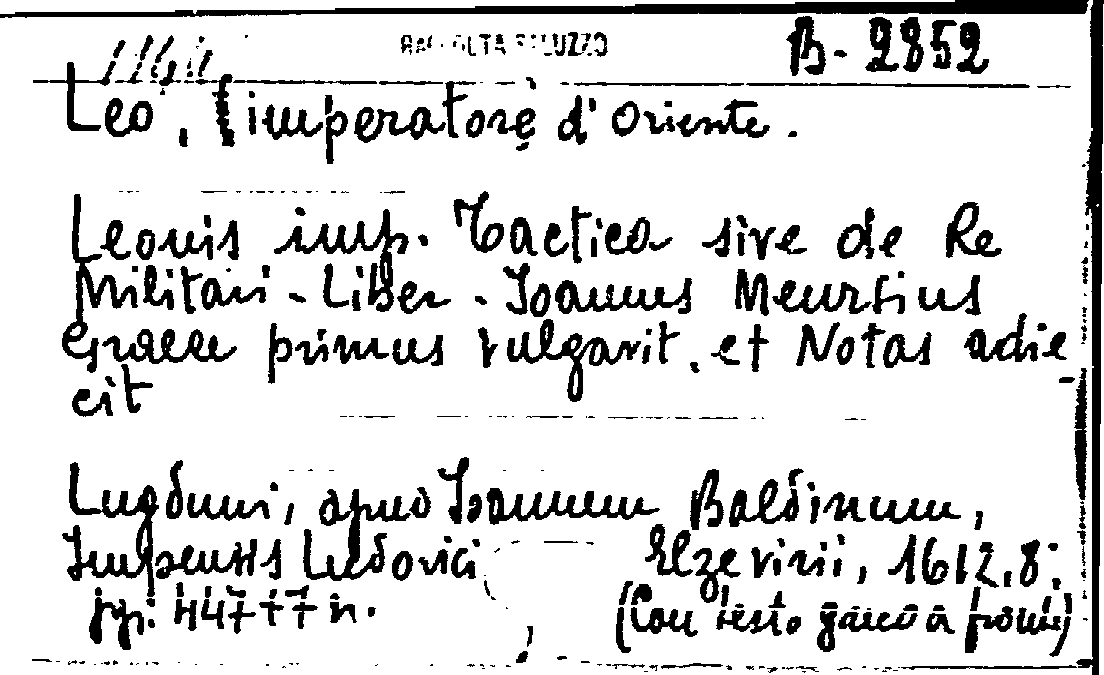 1164 RACCOLTA SALUZZO B-2852
Leo, imperatore d'Oriente.
Leonis imp. Tactica sive de Re
Militari - Liber - Joannes Meursius
Graece primus vulgarit. et Notas adie
cit
Lugduni, apud Joannem Baldinum,
Impensis Ludovici Elzevirii, 1612, 8°;
pp: 447+7 n. (Con testo greco a fronte)